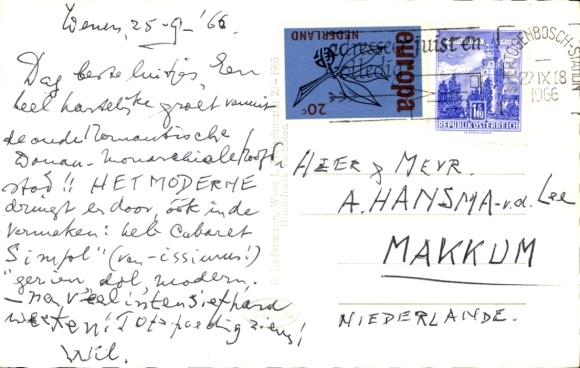 Wenen, 25-9-'66
Dag beste luitjes, Een
heel hartelijke groet vanuit
de oude Romantische
Donau-Monarchiale Hoofd-
stad!! HET MODERNE
dringt er door, óók in de
vermaken: heb Cabaret
Simpl" (van-issimus!)
"gezien, dol, modern,
– na veel intensief hard
werken! Tot spoedig ziens!
Wil.
NEDERLAND
europa
20c
CEPT
adresseer juist en
volledig
1.80
REPUBLIK ÖSTERREICH
'S-HERTOGENBOSCH-STATION
27 IX 18
1966
HEER & MEVR.
A. HANSMA-v.d. Lee
MAKKUM
NIEDERLANDE.